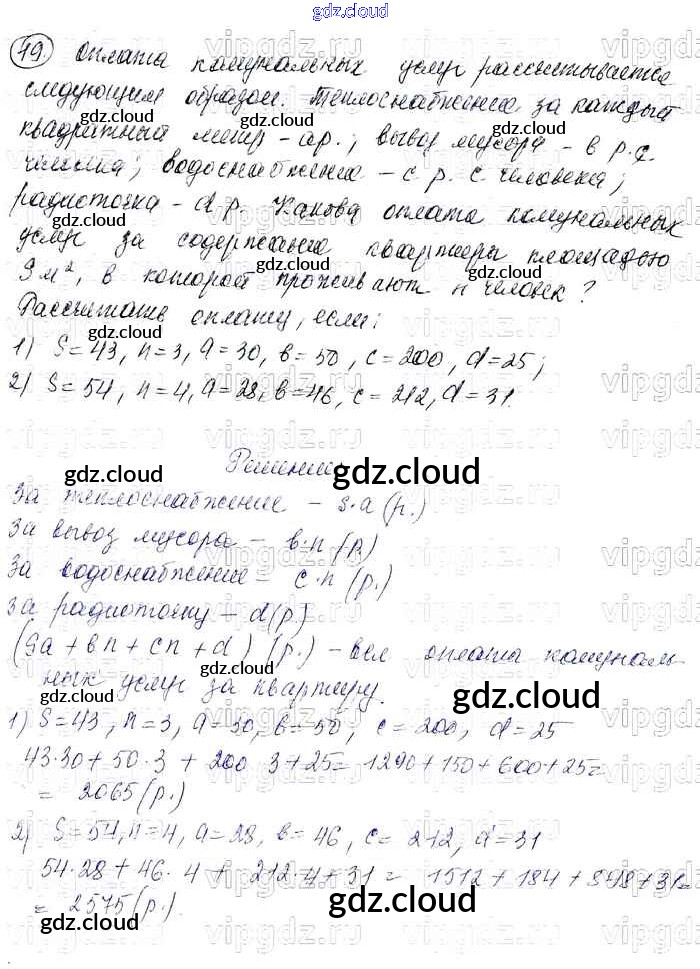 gdz.cloud
19. Оплата комунальных услуг рассчитывается
следующим образом. Теплоснабжение за каждый
квадратный метр - а р.; вывоз мусора - в р. с
человека; водоснабжение - с р. с человека;
радиоточка - d р. Какова оплата комунальных
услуг за содержание квартиры площадью
S м², в которой проживают n человек?
Рассчитать оплату, если:
1) S=43, n=3, a=30, в=50, c=200, d=25;
2) S=54, n=4, a=28, в=46, c=212, d=31.
Решение
За теплоснабжение - s·a (р.)
За вывоз мусора - в·n (р.)
За водоснабжение - c·n (р.)
За радиоточку - d(р.)
(Sa + вn + cn + d) (р.) - вся оплата комуналь-
ных услуг за квартиру.
1) S=43, n=3, a=30, в=50, c=200, d=25
43·30 + 50·3 + 200 3+25= 1290+150+600+25=
= 2065(р.)
2) S=54, n=4, a=28, в=46, c=212, d=31
54·28 + 46·4 + 212·4+31 = 1512+184+848+31=
= 2575(р.)